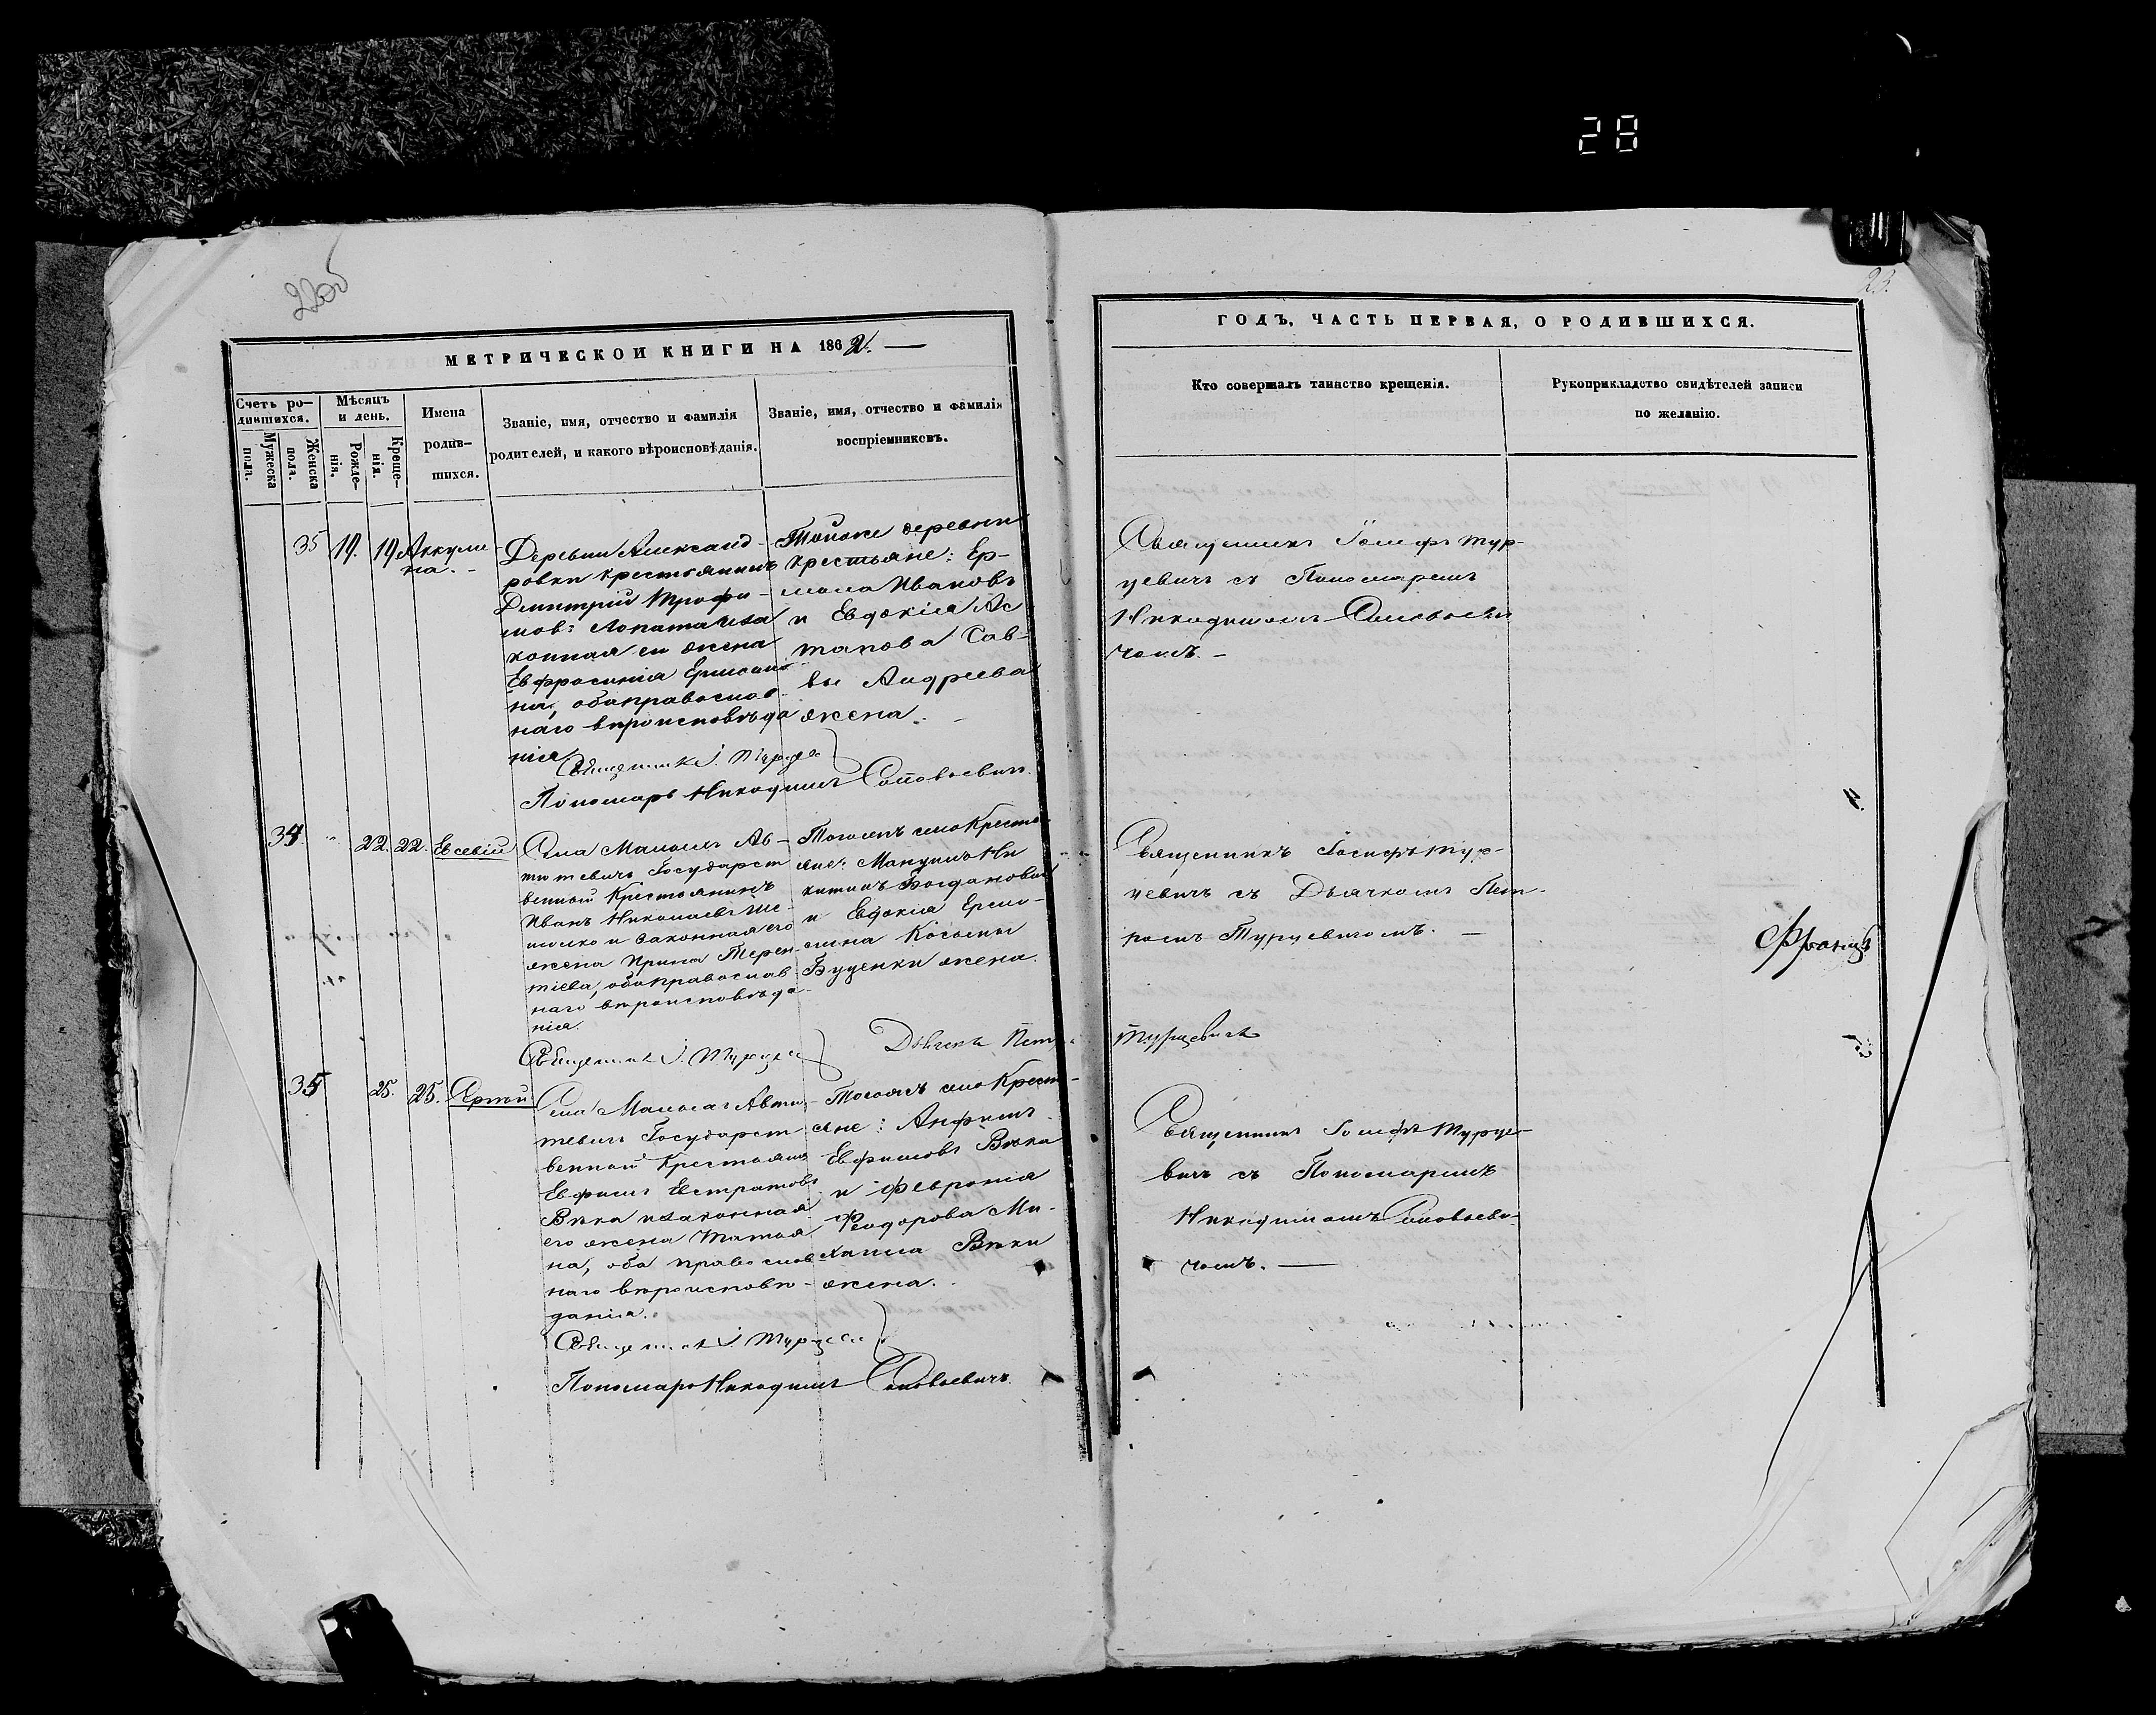 28
22об
23.
МЕТРИЧЕСКОЙ КНИГИ НА 1862. —
Счетъ ро-
дившихся.
Мужеска
пола.
Женска
пола.
Мѣсяцъ
и день.
Рожде-
нія,
Креще-
нія.
Имена
родив-
шихся.
Званіе, имя, отчество и фамилія
родителей, и какого вѣроисповѣданія.
Званіе, имя, отчество и фамилія
воспріемниковъ.
35 19. 19 Аккули-
на. -
Деревни Александ-
ровки крестьянинъ
Дмитрій Трофи-
мовъ Лопата и за
конная его жена
Евфросинія
на, оба православ
наго вѣроисповѣда
нія
Тойже деревни
крестьяне: Ер-
мола Ивановъ
и Евдокія Ас
тапова Сав-
вы Андреева
жена. -
Священникъ І. Турце
Пономарь Никодимъ Соловьевичъ.
34 " 22. 22. Евсевій
Села Малыхъ Ав-
тютевичъ Государст
венной Крестьянинъ
Иванъ Николаевъ
и законная его
жена Ирина Терен
тіева, оба православ
наго вѣроисповѣда-
нія.
Тогожъ села Кресть-
яне: Ни
китинъ Богдановичъ
и Евдокія Ермо-
лина Косьмы
Буценки жена.
Священникъ І. Турце
Дьячекъ Петръ
Турцевичъ
35 25. 25.
Села Малыхъ Автю-
тевичъ Государст
венной Крестьянинъ
Ефимъ Евстратовъ
Вѣка и законная
его жена Татья
на, оба православ
наго вѣроисповѣ-
данія.
Тогожъ села Кресть-
яне: Анфимъ
Евфимовъ Вѣка
и Февронія
Феодорова Ми-
хаила Вѣки
жена.
Священникъ І. Турце
Пономарь Никодимъ Соловьевичъ.
ГОДЪ, ЧАСТЬ ПЕРВАЯ, О РОДИВШИХСЯ.
Кто совершалъ таинство крещенія.
Рукоприкладство свидѣтелей записи
по желанію.
Священникъ Іосифъ Тур-
цевичъ съ Пономаремъ
Никодимомъ Соловьеви
чемъ. -
Священникъ Іосифъ Тур-
цевичъ съ Дьячкомъ Пет-
ромъ Турцевичемъ. —
Священникъ Іосифъ Турце-
вичъ съ Пономаремъ
Никодимомъ Соловьеви-
чемъ. —